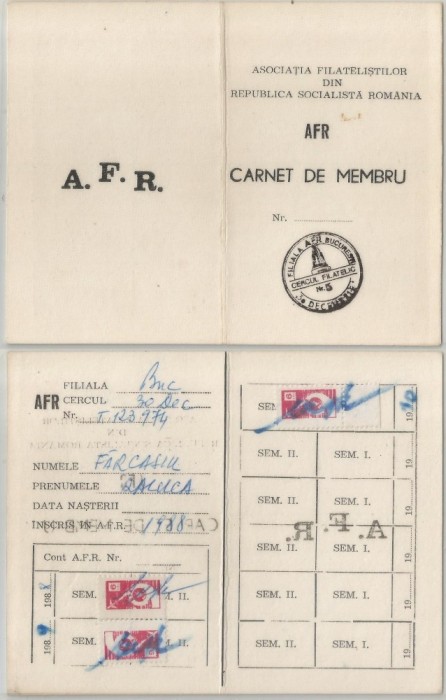 A. F. R.
ASOCIAȚIA FILATELIȘTILOR
DIN
REPUBLICA SOCIALISTĂ ROMÂNIA
AFR
CARNET DE MEMBRU
Nr.
FILIALA A.F.R. BUCUREȘTI
CERCUL FILATELIC
Nr. 5
30 DECEMBRIE
AFR
FILIALA Buc
CERCUL 30 Dec
Nr. T.123.974
NUMELE FĂRCAȘIU
PRENUMELE RALUCA
DATA NAȘTERII
ÎNSCRIS ÎN A.F.R. 1988
Cont A.F.R. Nr.
198 8 SEM. M. II.
198 9 SEM. M. II.
SEM. 19 90
SEM. II. SEM. I. 19
SEM. II. SEM. I. 19
SEM. II. SEM. I. 19
SEM. II. SEM. I. 19
SEM. II. SEM. I. 19
SEM. II. SEM. I. 19
A. F. R.